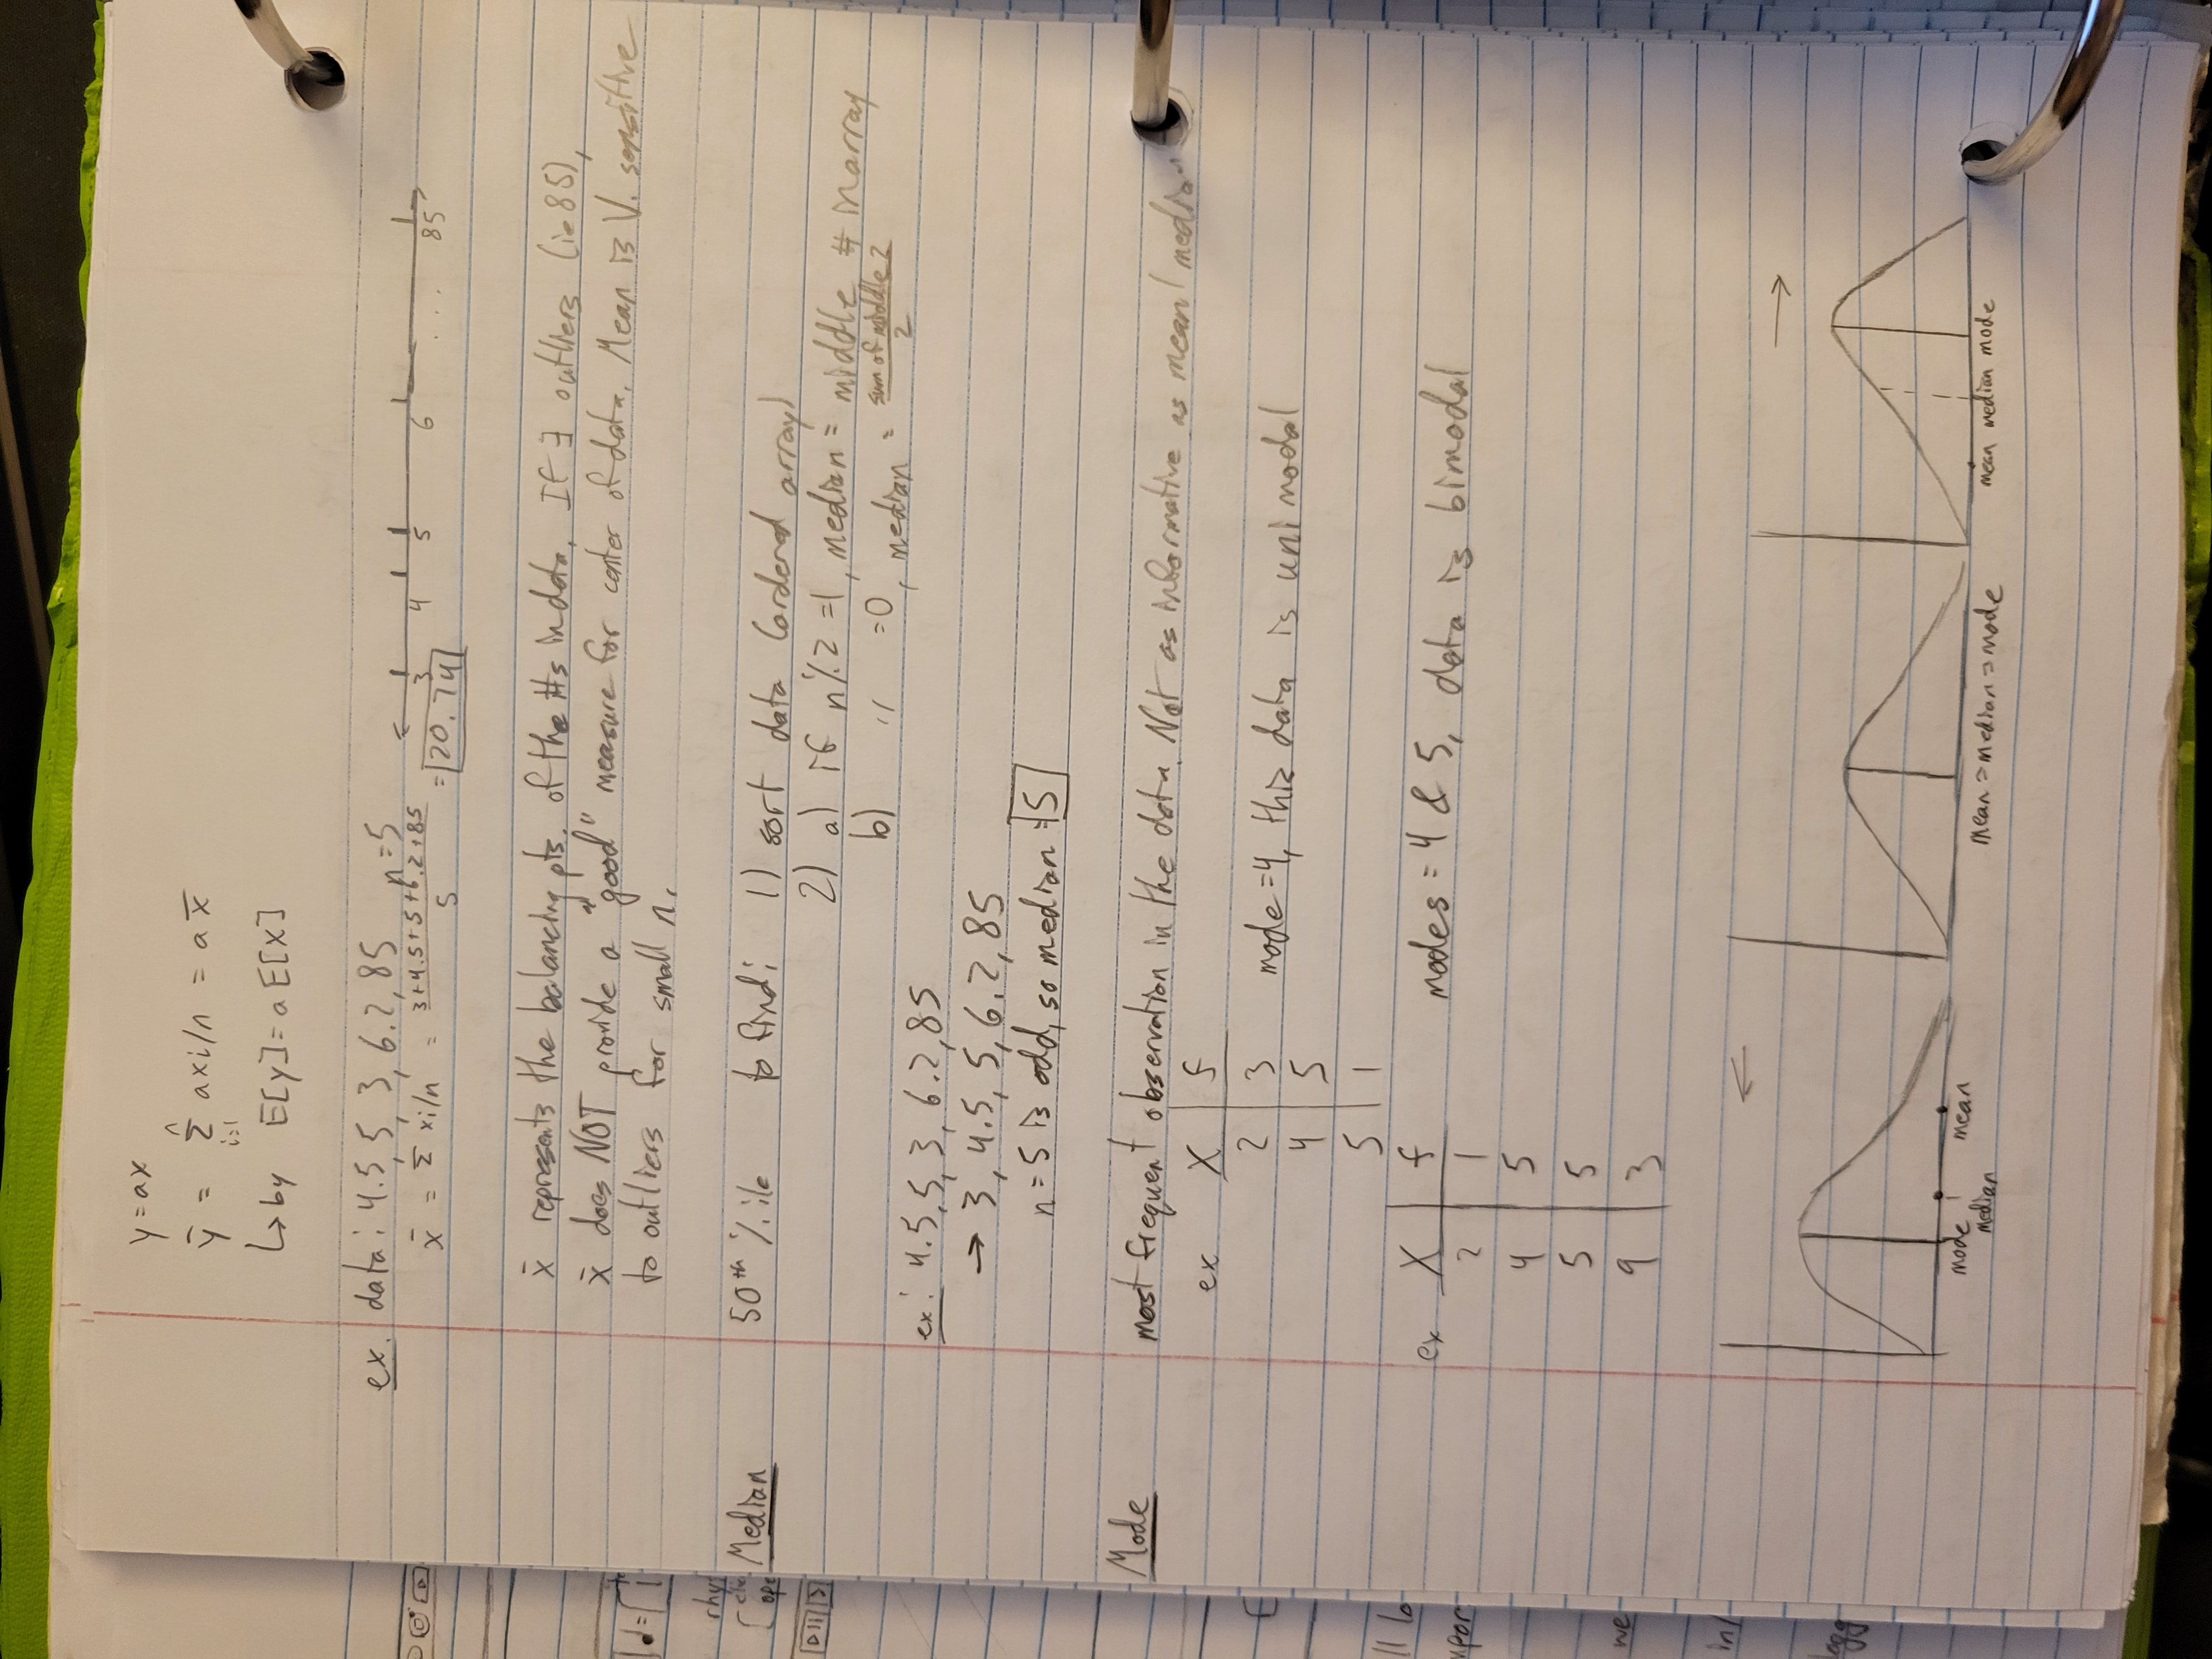 y = ax
ȳ = Σ (i=1 to n) axi/n = a x̄
↳ by E[y] = a E[X]
ex. data: 4.5, 5, 3, 6.2, 85 n=5
x̄ = Σ xi/n = (3+4.5+5+6.2+85)/5 = 20.74
3 4 5 6 ... 85
x̄ represents the balancing pts. of the #s in data. If ∃ outliers (ie 85),
x̄ does NOT provide a "good" measure for center of data. Mean is V. sensitive
to outliers for small n.
Median 50th %ile to find: 1) sort data (ordered array)
2) a) if n%2 =1, median = middle # in array
b) " =0, median = sum of middle 2 / 2
ex: 4.5, 5, 3, 6.2, 85
→ 3, 4.5, 5, 6.2, 85
n=5 is odd, so median = 5
Mode most frequent observation in the data. Not as informative as mean/median
ex X f
2 3 mode=4, this data is unimodal
4 5
5 1
ex X f modes = 4 & 5, data is bimodal
2 1
4 5
5 5
9 3
← →
mode mean
median
mean = median = mode
mean median mode
|| lo
rhy
ope
we
in/
d=